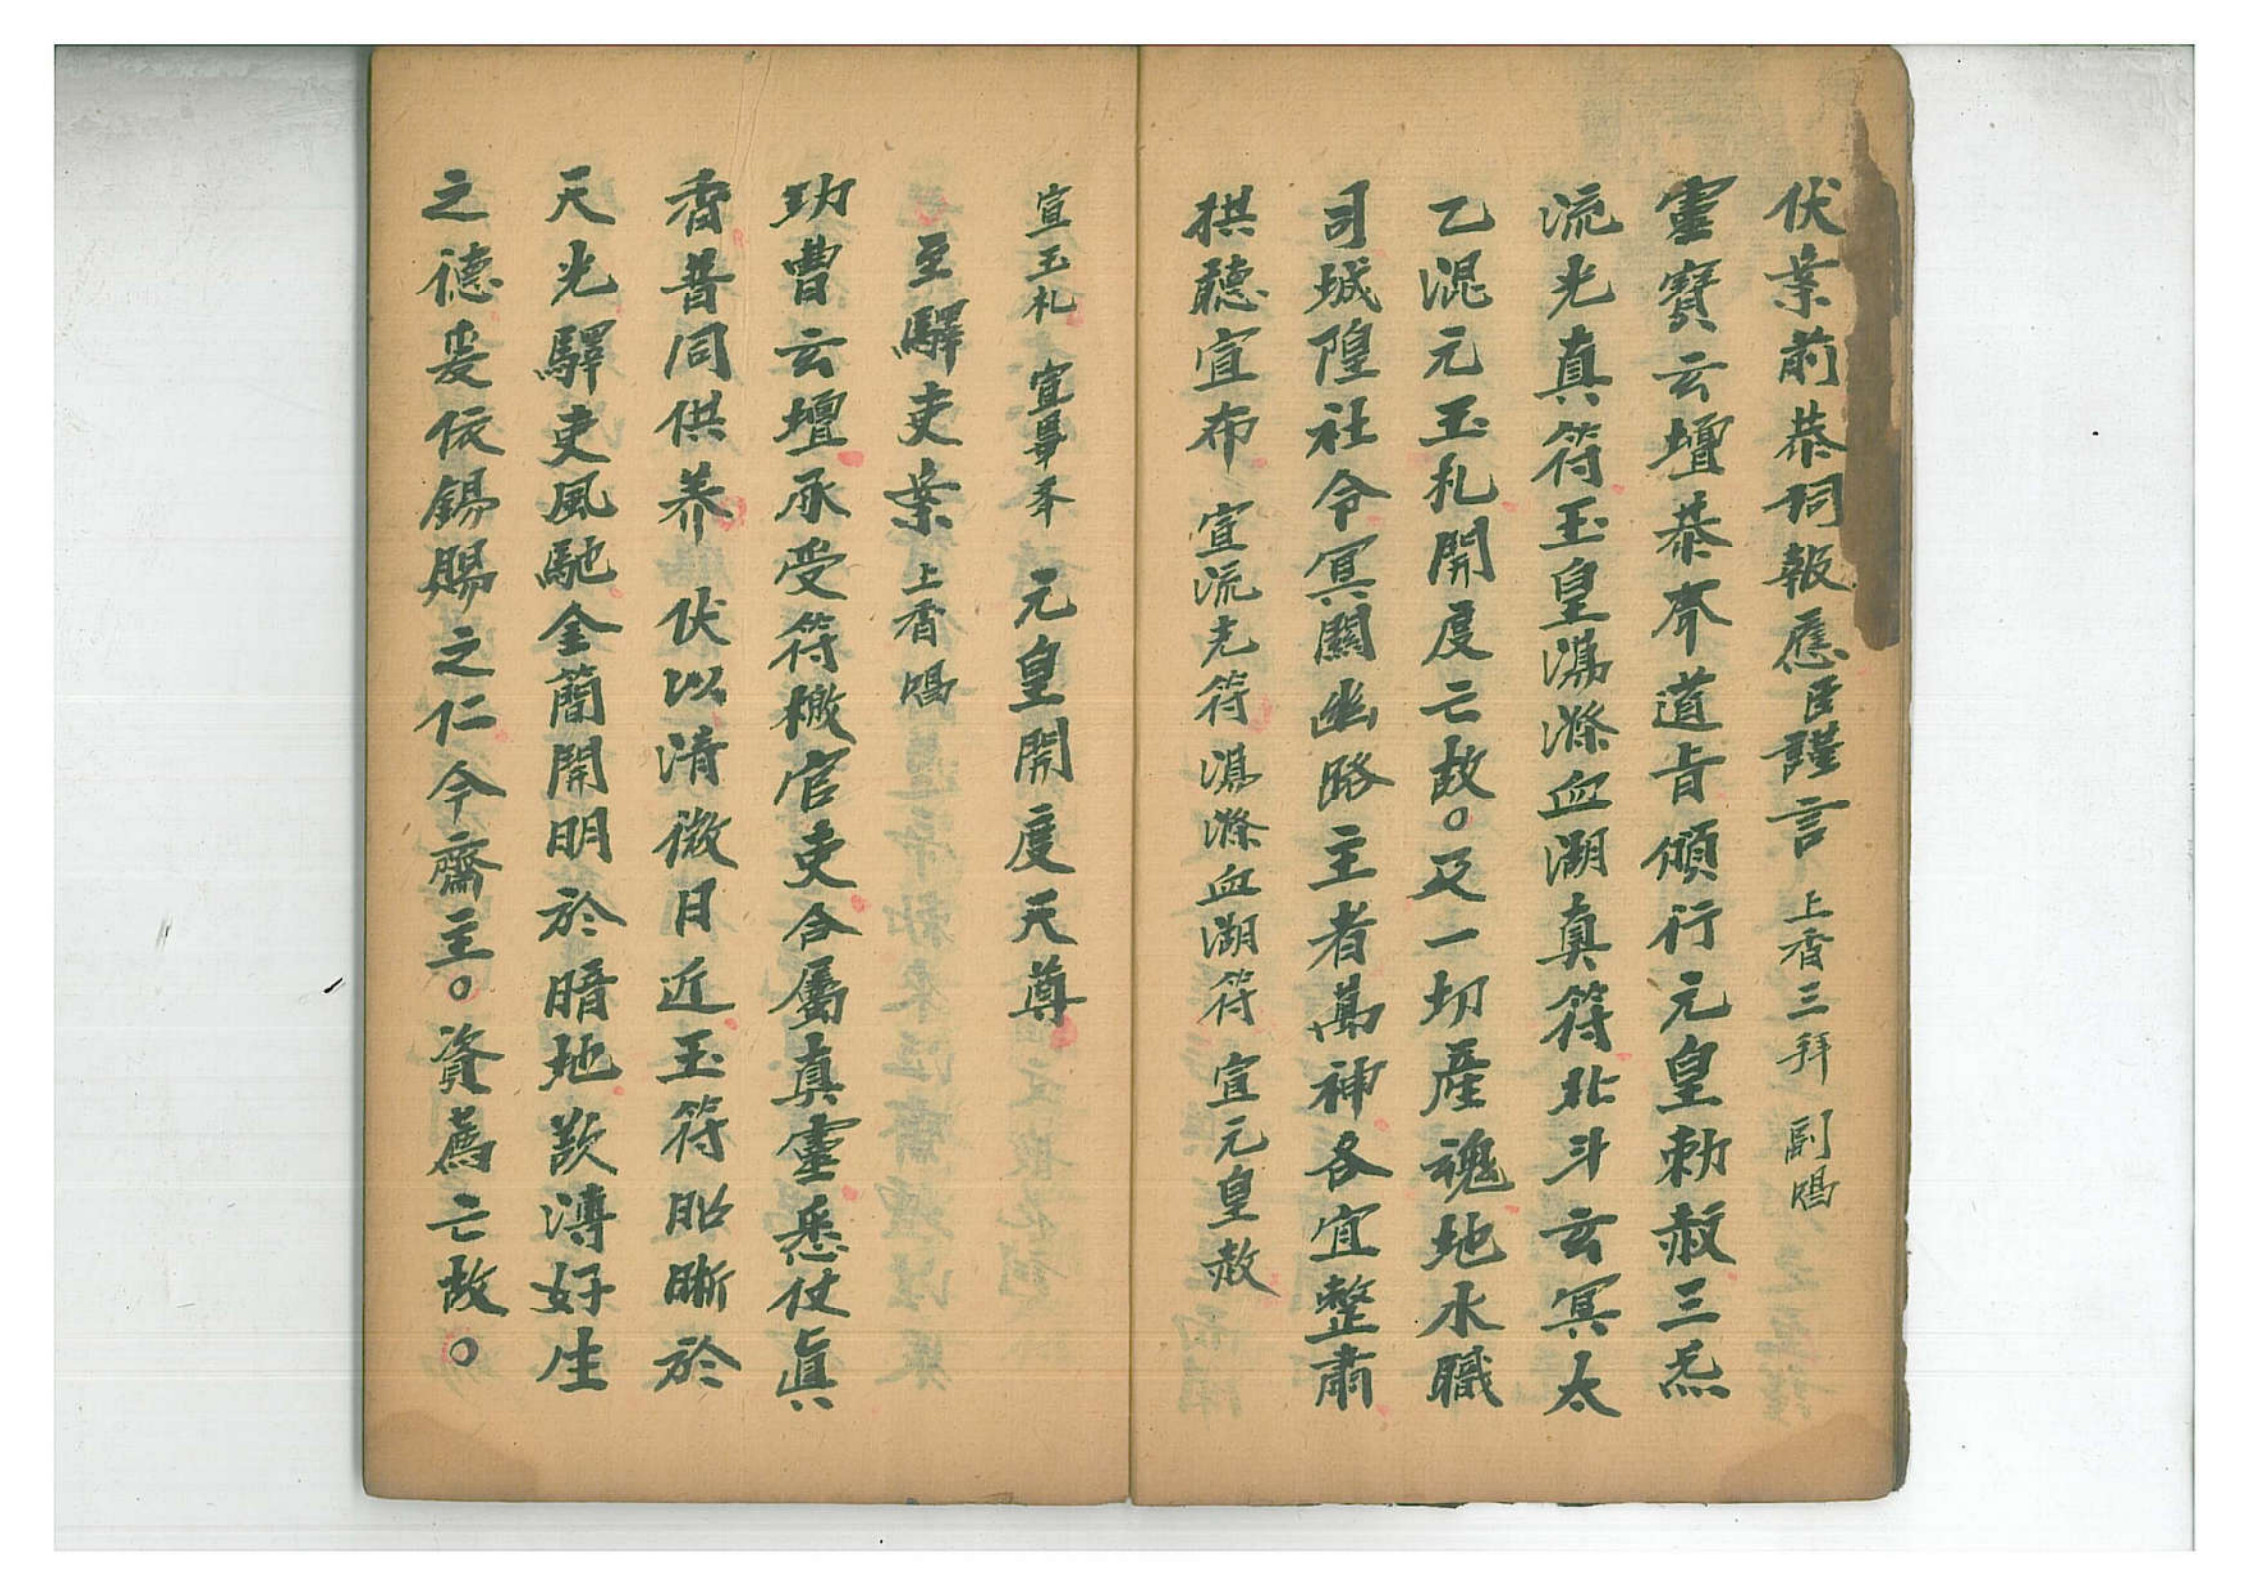 伏業前恭伺報應臣謹言 上香三拜 副唱
靈寶云壇恭奉道旨頒行元皇勅赦三炁
流光真符玉皇瀉滌血湖真符北斗玄冥太
乙混元玉札開度亡故。及一切産魂地水職
司城隍社令冥關幽路主者萬神各宜整肅
拱聽宣布 宣流光符 瀉滌血湖符 宣元皇赦
宣玉札 宣畢奉 元皇開度天尊
至驛吏業 上香唱
功曹云壇承受符檄官吏合屬真靈悉仗眞
香普同供养 伏以清微月近玉符昭晰於
天光驛吏風馳金簡開明於暗地歎溥好生
之德爰依錫賜之仁今齋主。資薦亡故。